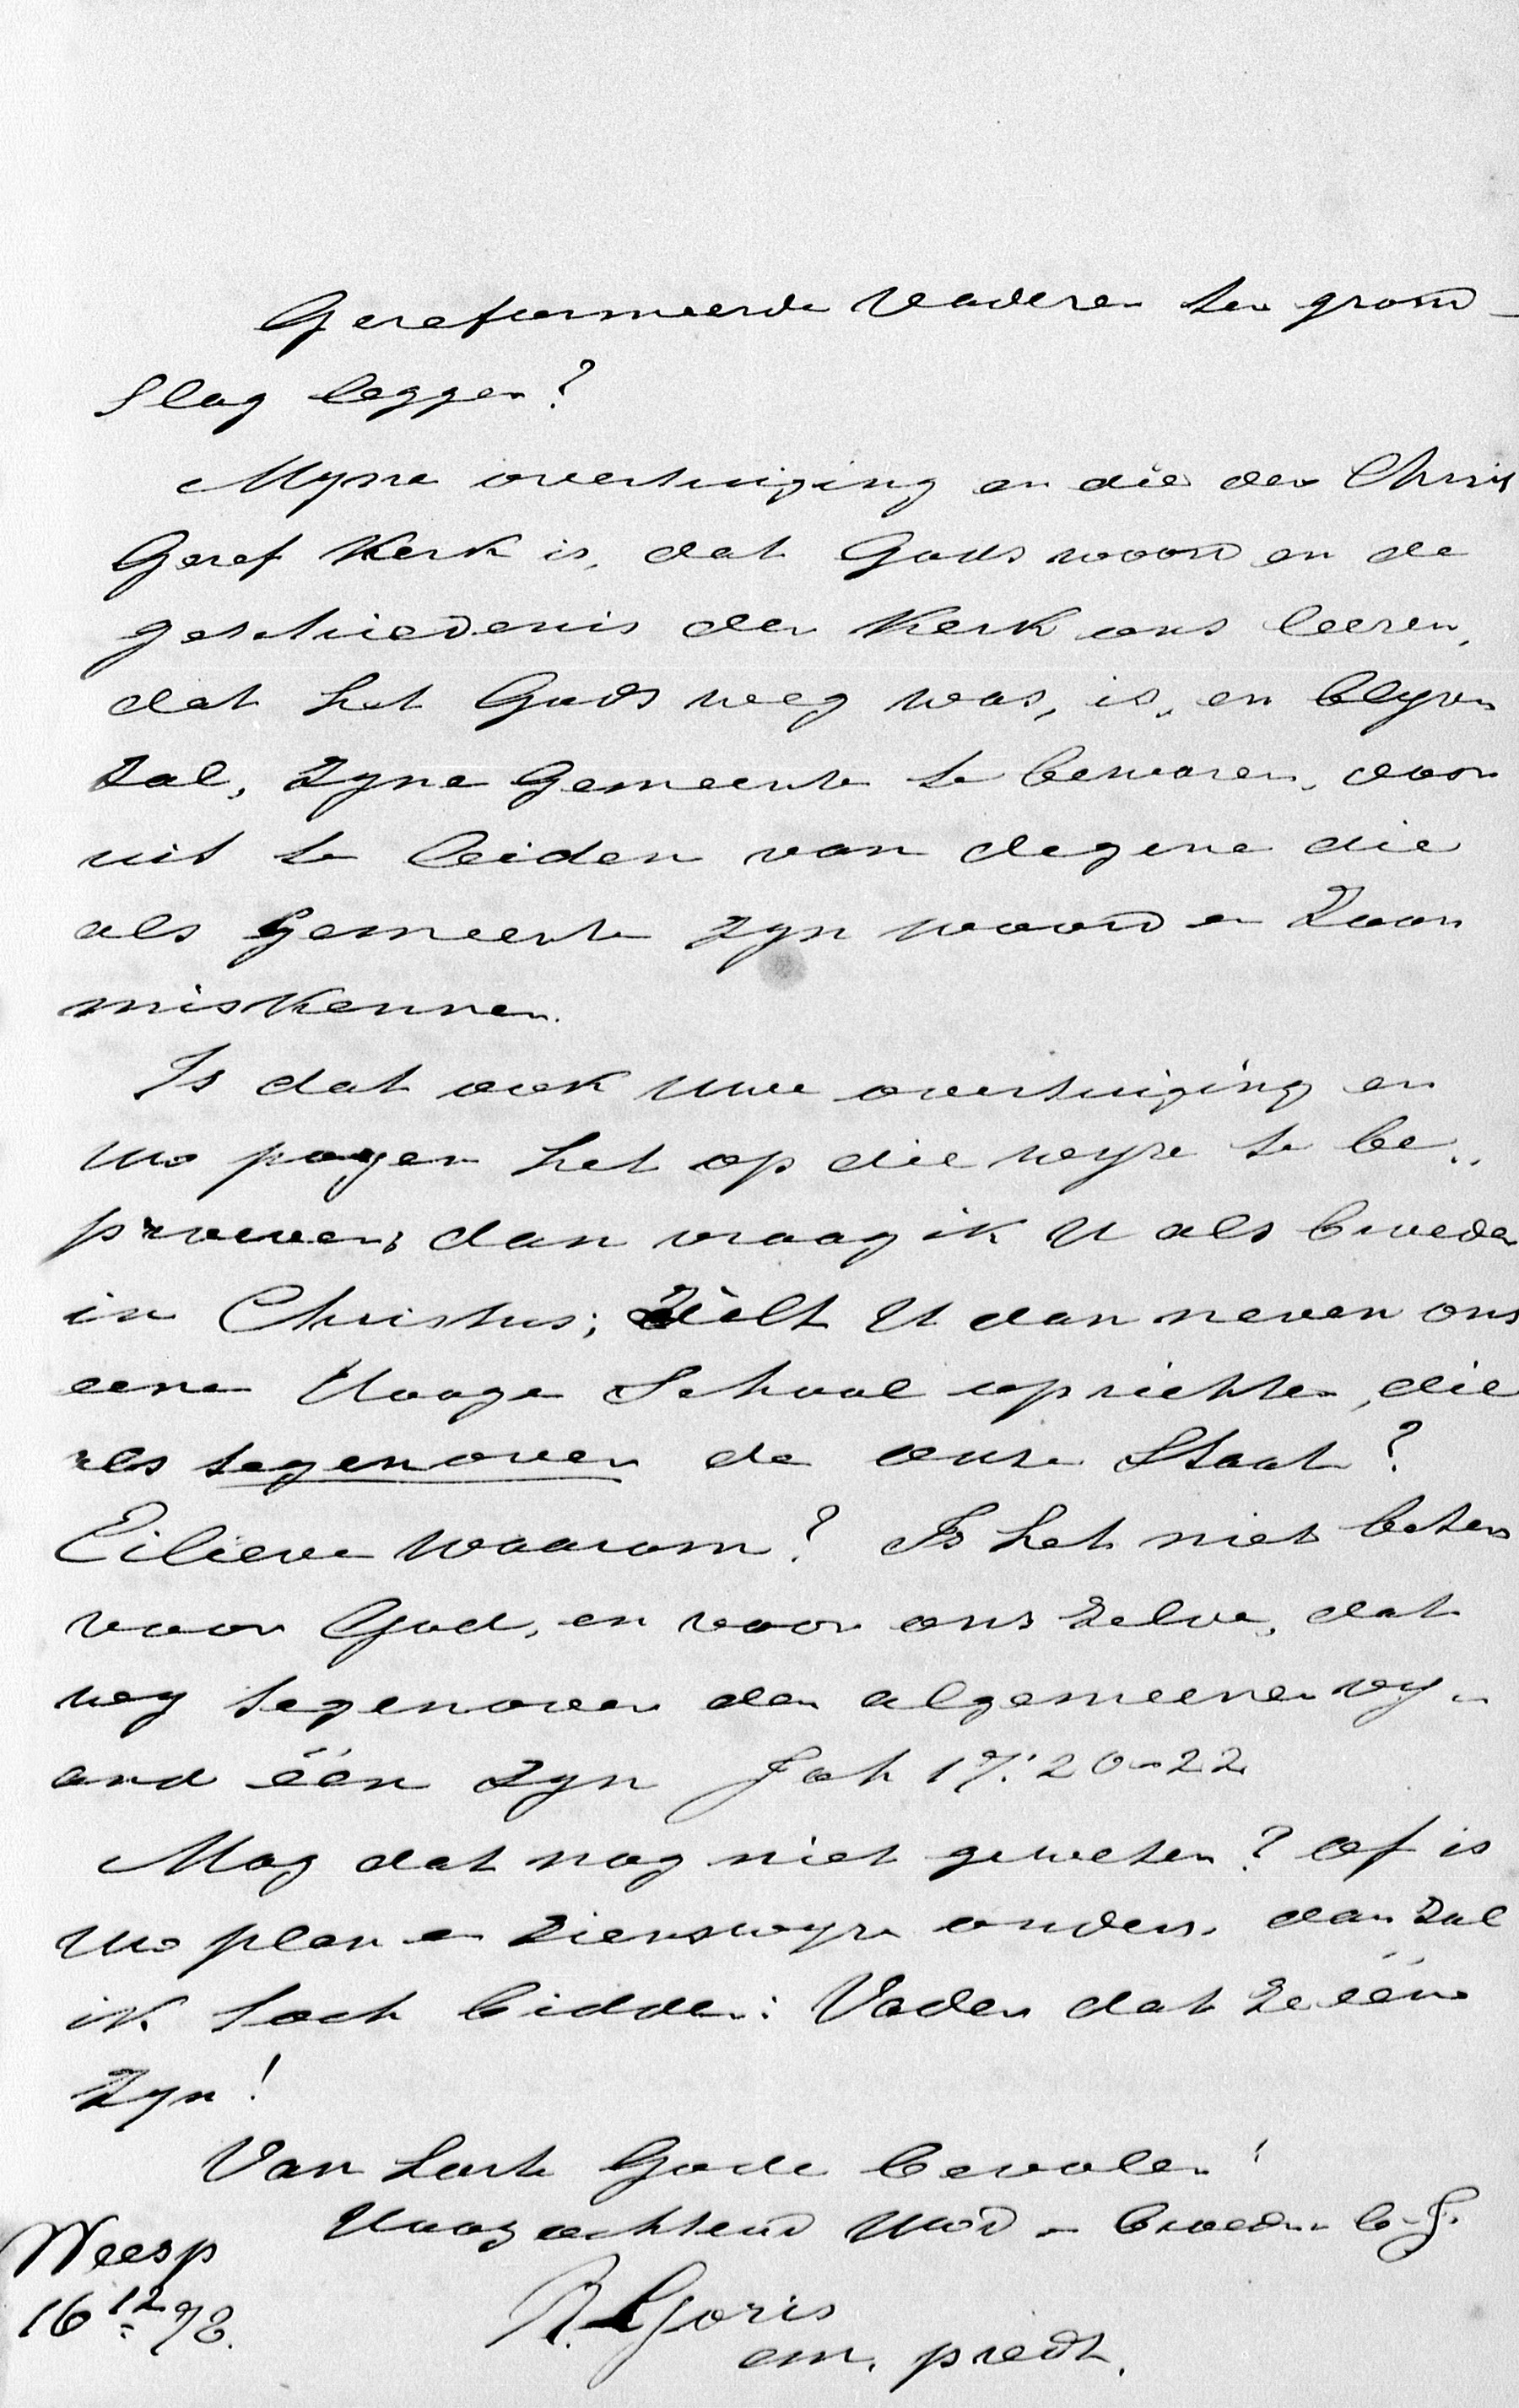 Gereformeerde Vaderen ten grond-
slag leggen?
Myne overtuiging en die der Chris
Geref Kerk is, dat Gods woord en de
geschiedenis der Kerk ons leeren,
dat het Gods weg was, is, en blyven
zal, zyne Gemeente te bewaren, door
uit te leiden van degene die
als Gemeente zyn woord en Zoon
miskennen.
Is dat ook uwe overtuiging en
uw pogen het op die wyze te be..
proeven; dan vraag ik U als broeder
in Christus; Zult U dan neven ons
eene Hooge School oprichten, die
als tegenover de onze Staat?
Eilieve waarom? Is het niet beter
voor God, en voor ons zelve, dat
wy tegenover den algemeenen vy-
and één zyn Joh 17:20-22
Mag dat nog niet gebeuren? of is
uw plan en zienswyze anders, dan zal
ik toch bidden: Vader dat ze één
zyn!
Van harte Gode bevolen!
Hoogachtend UwD - broeder
Weesp
16 12 78.
R. Goris
em. predt.